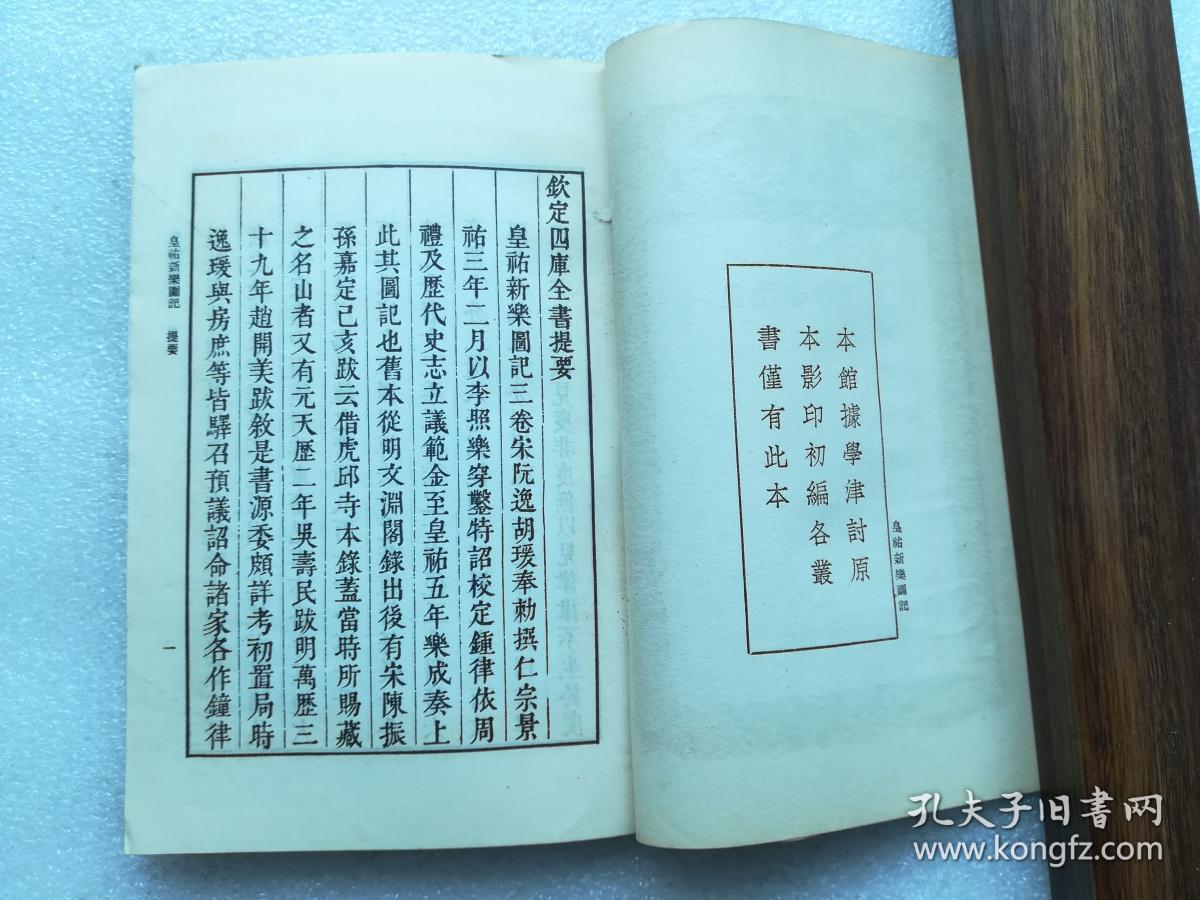 本館據學津討原
本影印初編各叢
書僅有此本
皇祐新樂圖記
欽定四庫全書提要
皇祐新樂圖記三卷宋阮逸胡瑗奉勅撰仁宗景
祐三年二月以李照樂穿鑿特詔校定鍾律依周
禮及歷代史志立議範金至皇祐五年樂成奏上
此其圖記也舊本從明文淵閣錄出後有宋陳振
孫嘉定己亥跋云借虎邱寺本錄蓋當時所賜藏
之名山者又有元天歷二年吳壽民跋明萬歷三
十九年趙開美跋敘是書源委頗詳考初置局時
逸瑗與房庶等皆驛召預議詔命諸家各作鐘律
皇祐新樂圖記 提要
一
孔夫子旧书网
www.kongfz.com